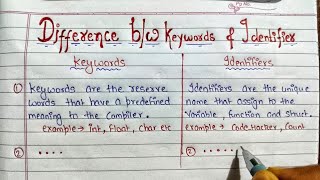 Difference b/w Keywords & Identifier
Keywords
① Keywords are the reserve
words that have a predefined
meaning to the compiler.
example → int, float, char etc
② . . . .
Identifiers
① Identifiers are the unique
name that assign to the
variable, function and struct.
example → CodeHacker, Count
② . . . . .